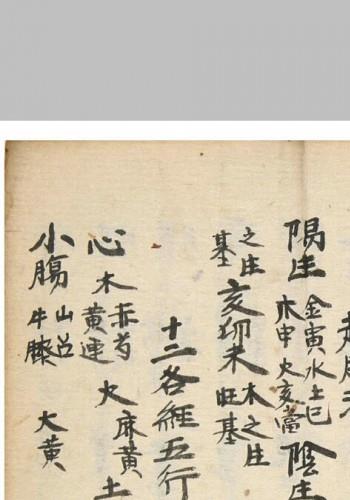 陽生 金寅水土巳 木申火亥當 陰生
之生基 亥卯未 木之生旺基
十二各經五行
心 木 赤芍 黃連 火 麻黃 土
小腸 山 牛膝 大黃